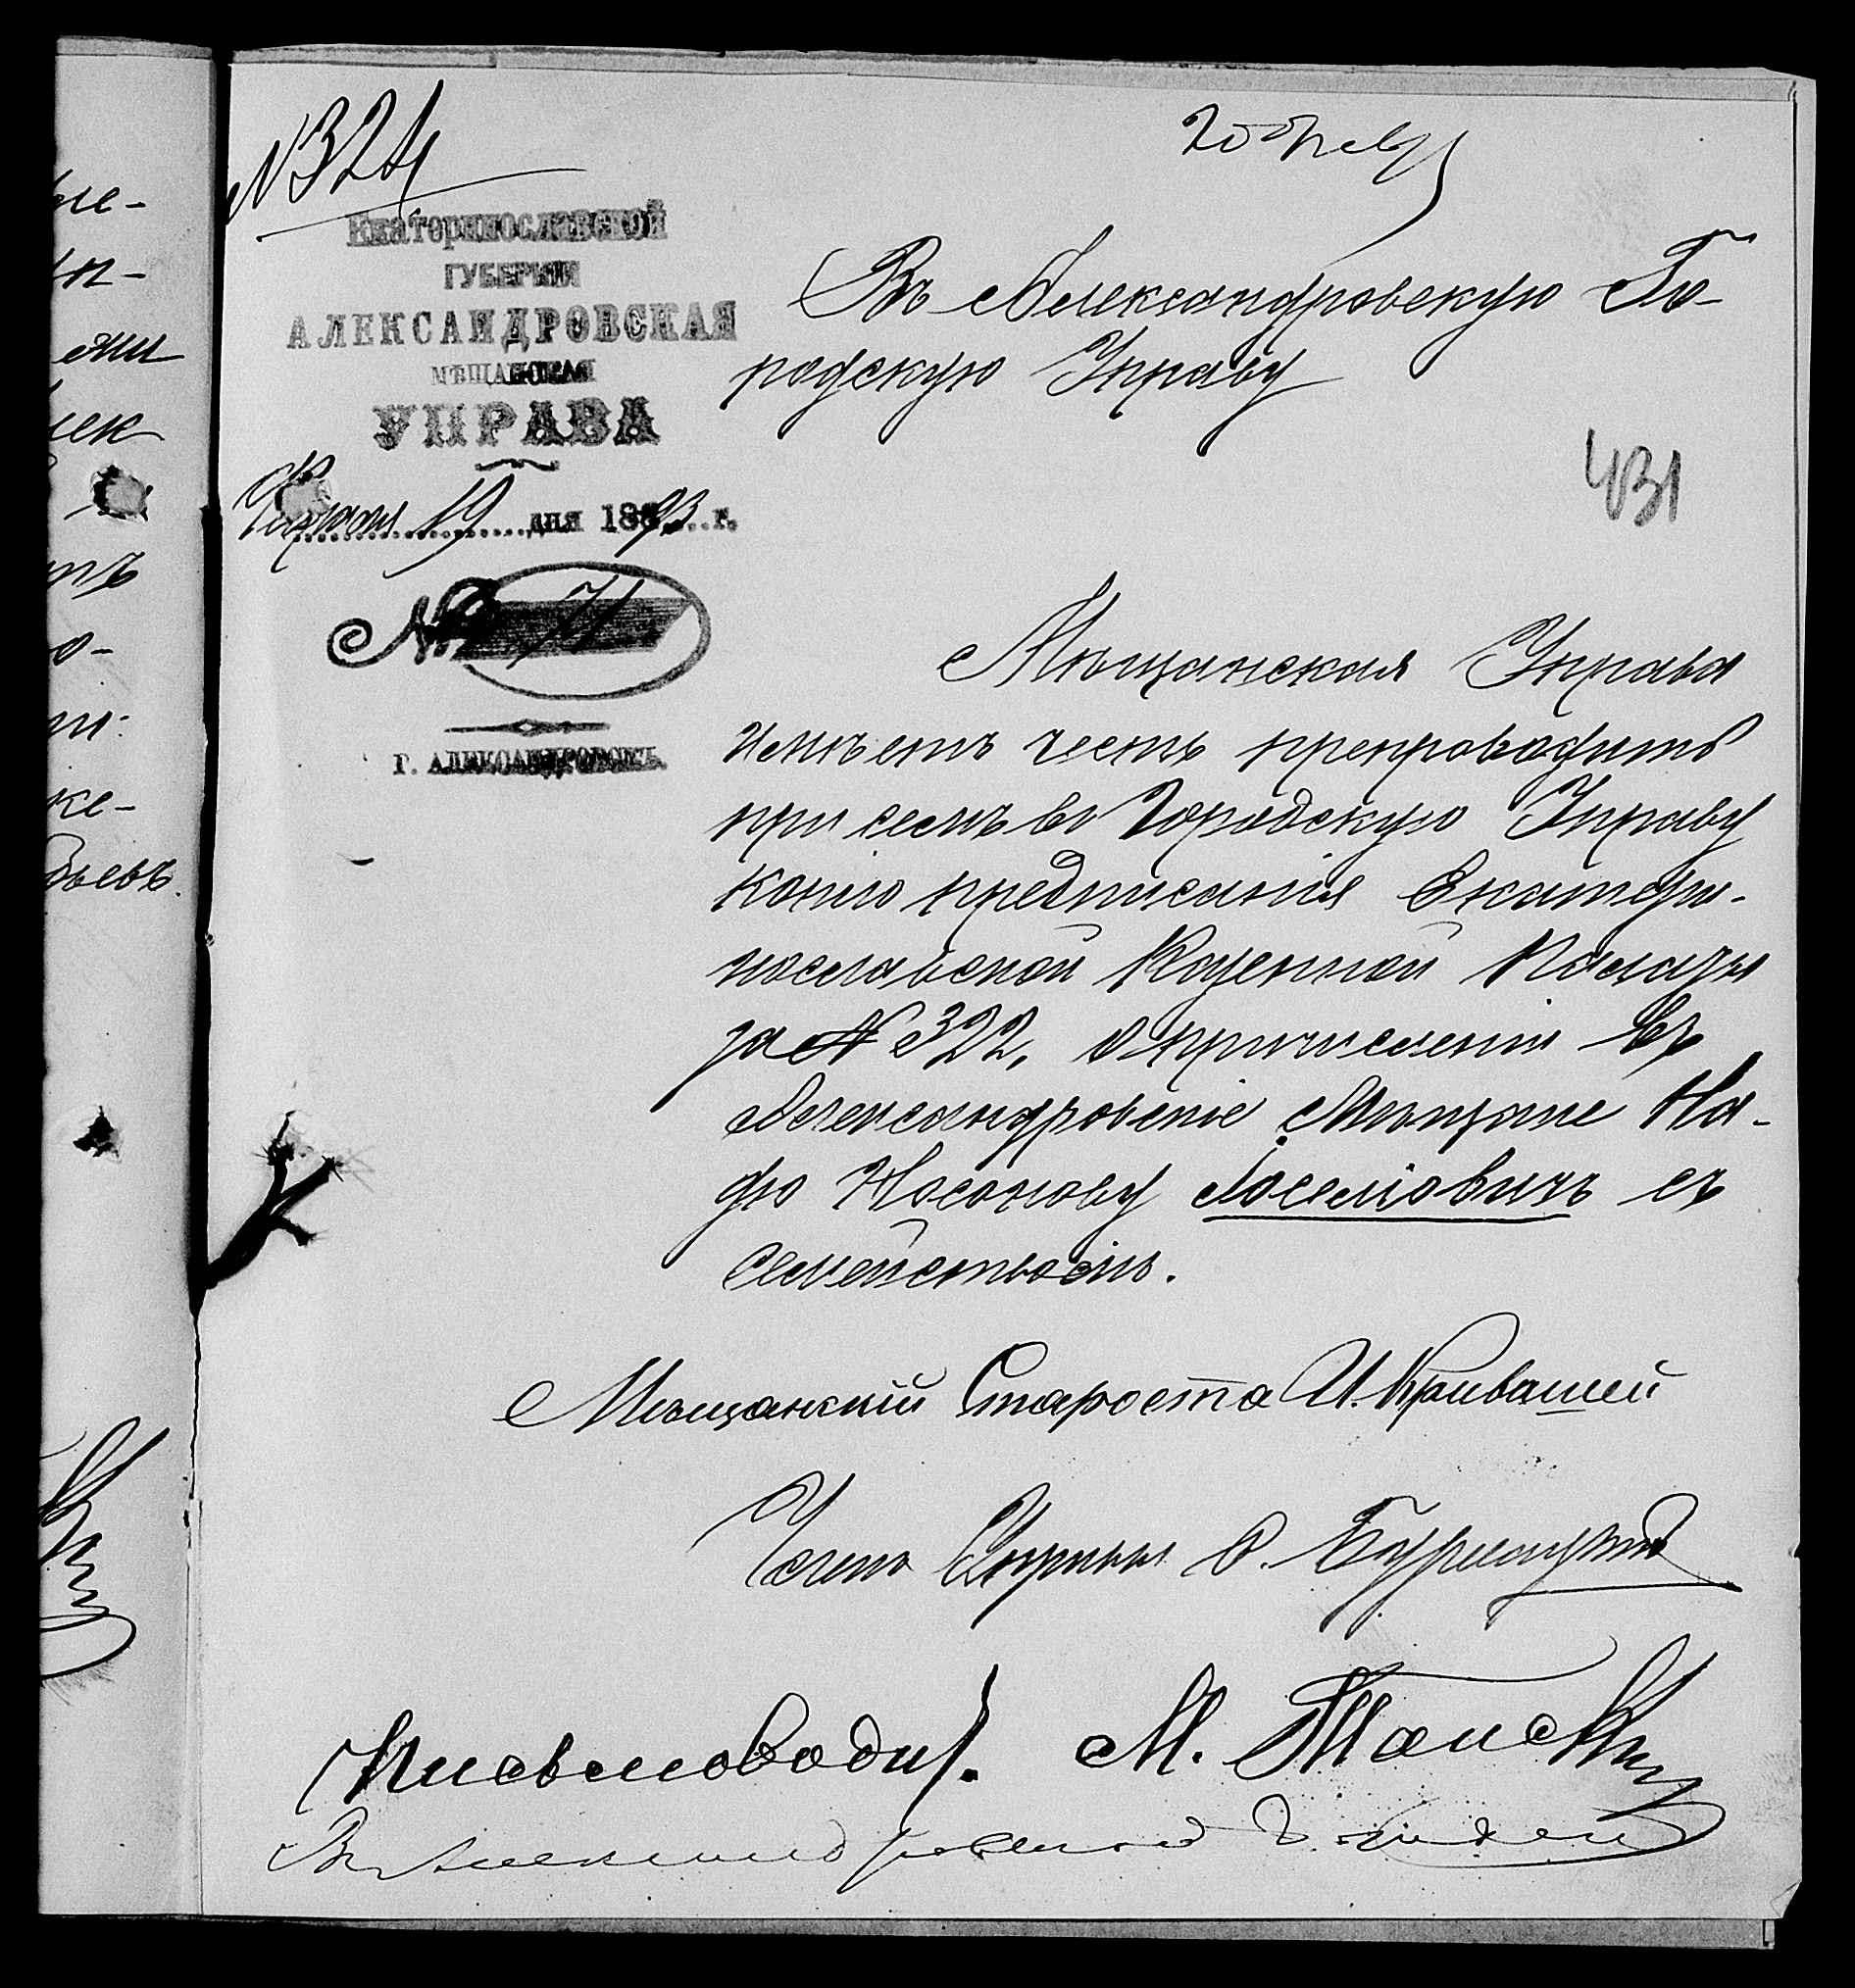 № 324
20 Февр
Екатеринославской
ГУБЕРНІИ
АЛЕКСАНДРОВСКАЯ
МѢЩАНСКАЯ
УПРАВА
Февраля 19 дня 1893 г.
№ 71
Г. АЛЕКСАНДРОВСКЪ.
Въ Александровскую Го-
родскую Управу
431
Мѣщанская Управа
имѣетъ честь препроводить
при семъ въ Городскую Управу
копію предписанія Екатери-
нославской Казенной Палаты
за № 322, о причисленіи въ
Александровскіе Мѣщане
Носонову Іоселіовичъ съ
семействомъ.
Мѣщанскій Староста И. Кривошей
Членъ Управы
Письмоводит. М.
ле-
ек
тъ
о-
ке-